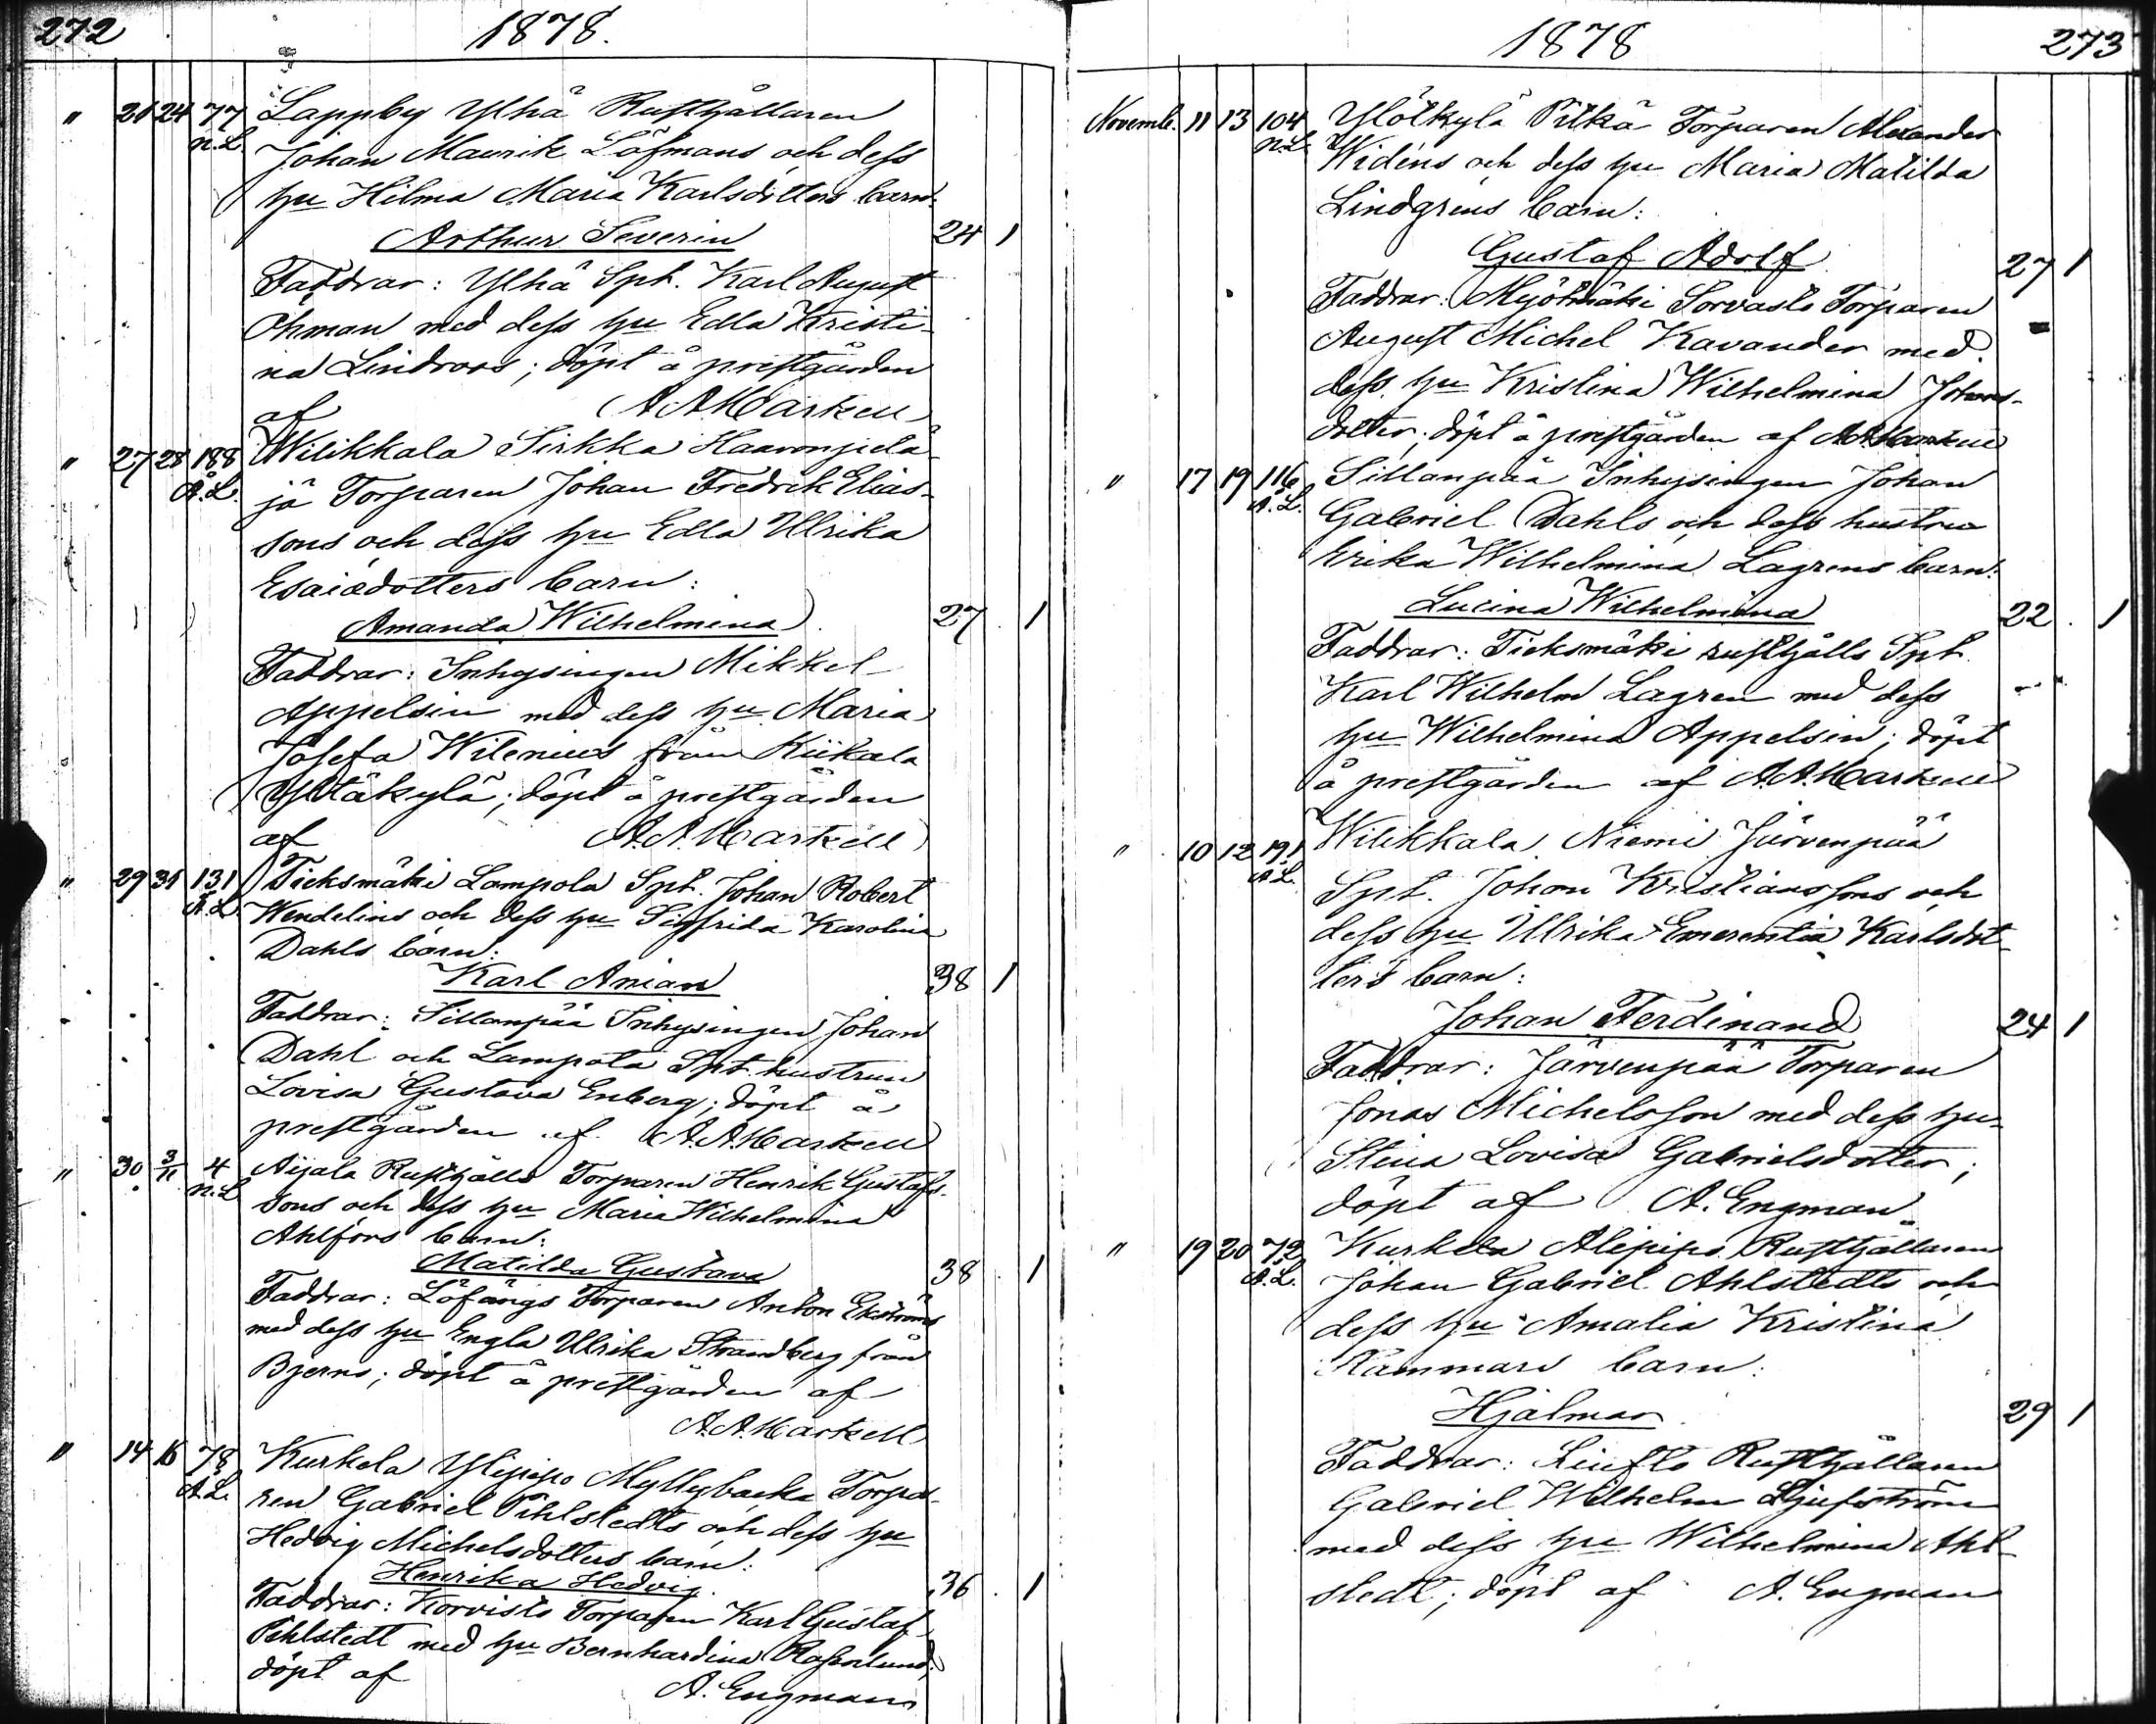 272 1878.
" 21 24 77 Lappby Ylhä Rusthållaren
n.L. Johan Maurik Löfmans och dess
hu Hilma Maria Karlsdotters barn:
Arthur Severin 24 1
Faddrar: Ylhä Spt. Karl August
Öhman med dess hu Edla Kristi-
na Lindroos; döpt å prestgården
af A A Markell
" 27 28 188 Wilikkala Sirkka Haavonjelä-
A.L. jä Torparen Johan Fredrik Elias-
sons och dess hu Edla Ulrika
Esaiædotters barn:
Amanda Wilhelmina 27 1
Faddrar: Inhysingen Mikkel
Appelsin med dess hu Maria
Josefa Wilenius från Kiikala
Yltäkylä; döpt å prestgården
af A.A. Markell
" 29 31 131 Ticksmäki Lampola Spt. Johan Robert
A.L. Wendelins och dess hu Sigfrida Karolina
Dahls barn:
Karl Anian 38 1
Faddrar: Sillanpää Inhysingen Johan
Dahl och Lampola Spt. hustrun
Lovisa Gustava Enberg; döpt å
prestgården af A.A. Markell
" 30 3/11 4 Aijala Rusthålls Torparen Henrik Gustafs-
n.L sons och dess hu Maria Wilhelmina
Ahlfors barn:
Matilda Gustava 38 1
Faddrar: Löfängs Torparen Anton Ekströms
med dess hu Engla Ulrika Strandberg från
Bjerno; döpt å prestgården af
A.A. Markell
" 14 16 78 Kurkela Ylipipo Myllybacka Torpa-
A.L. ren Gabriel Pihlstedts och dess hu
Hedvig Michelsdotters barn:
Henrika Hedvig. 36 1
Faddrar: Korvisto Torparen Karl Gustaf
Pihlstedt med hu Bernhardina Rosenlund;
döpt af A. Engman
1878 273
Novemb. 11 13 104 Ylölkylä Pitkä Torparen Alexander
n.L. Widéns och dess hu Maria Matilda
Lindgrens barn:
Gustaf Adolf 27 1
Faddrar: Myötmäki Sorvasto Torparen
August Michel Kavander med
dess hu Kristina Wilhelmina Johans-
dotter; döpt å prestgården af A.A. Markell
" 17 19 116 Sillanpää Inhysingen Johan
A.L. Gabriel Dahls och dess hustru
Erika Wilhelmina Lagrens barn:
Lucina Wilhelmina 22 1
Faddrar: Ticksmäki rusthålls Spt.
Karl Wilhelm Lagren med dess
hu Wilhelmina Appelsin; döpt
å prestgården af A.A. Markell
" 10 12 191 Wilikkala Niemi Järvenpää
A.L. Spt. Johan Kristianssons och
dess hu Ulrika Emerentia Karlsdot-
ters barn:
Johan Ferdinand 24 1
Faddrar: Järvenpää Torparen
Jonas Michelsson med dess hu
Stina Lovisa Gabrielsdotter;
döpt af A. Engman
" 19 20 72 Kurkela Alipipo Rusthållaren
A.L. Johan Gabriel Ahlstedts och
dess hu Amalia Kristina
Nammars barn:
Hjalmar 29 1
Faddrar: Rusthållaren
Gabriel Wilhelm Ljufström
med dess hu Wilhelmina Ahl-
stedt; döpt af A. Engman